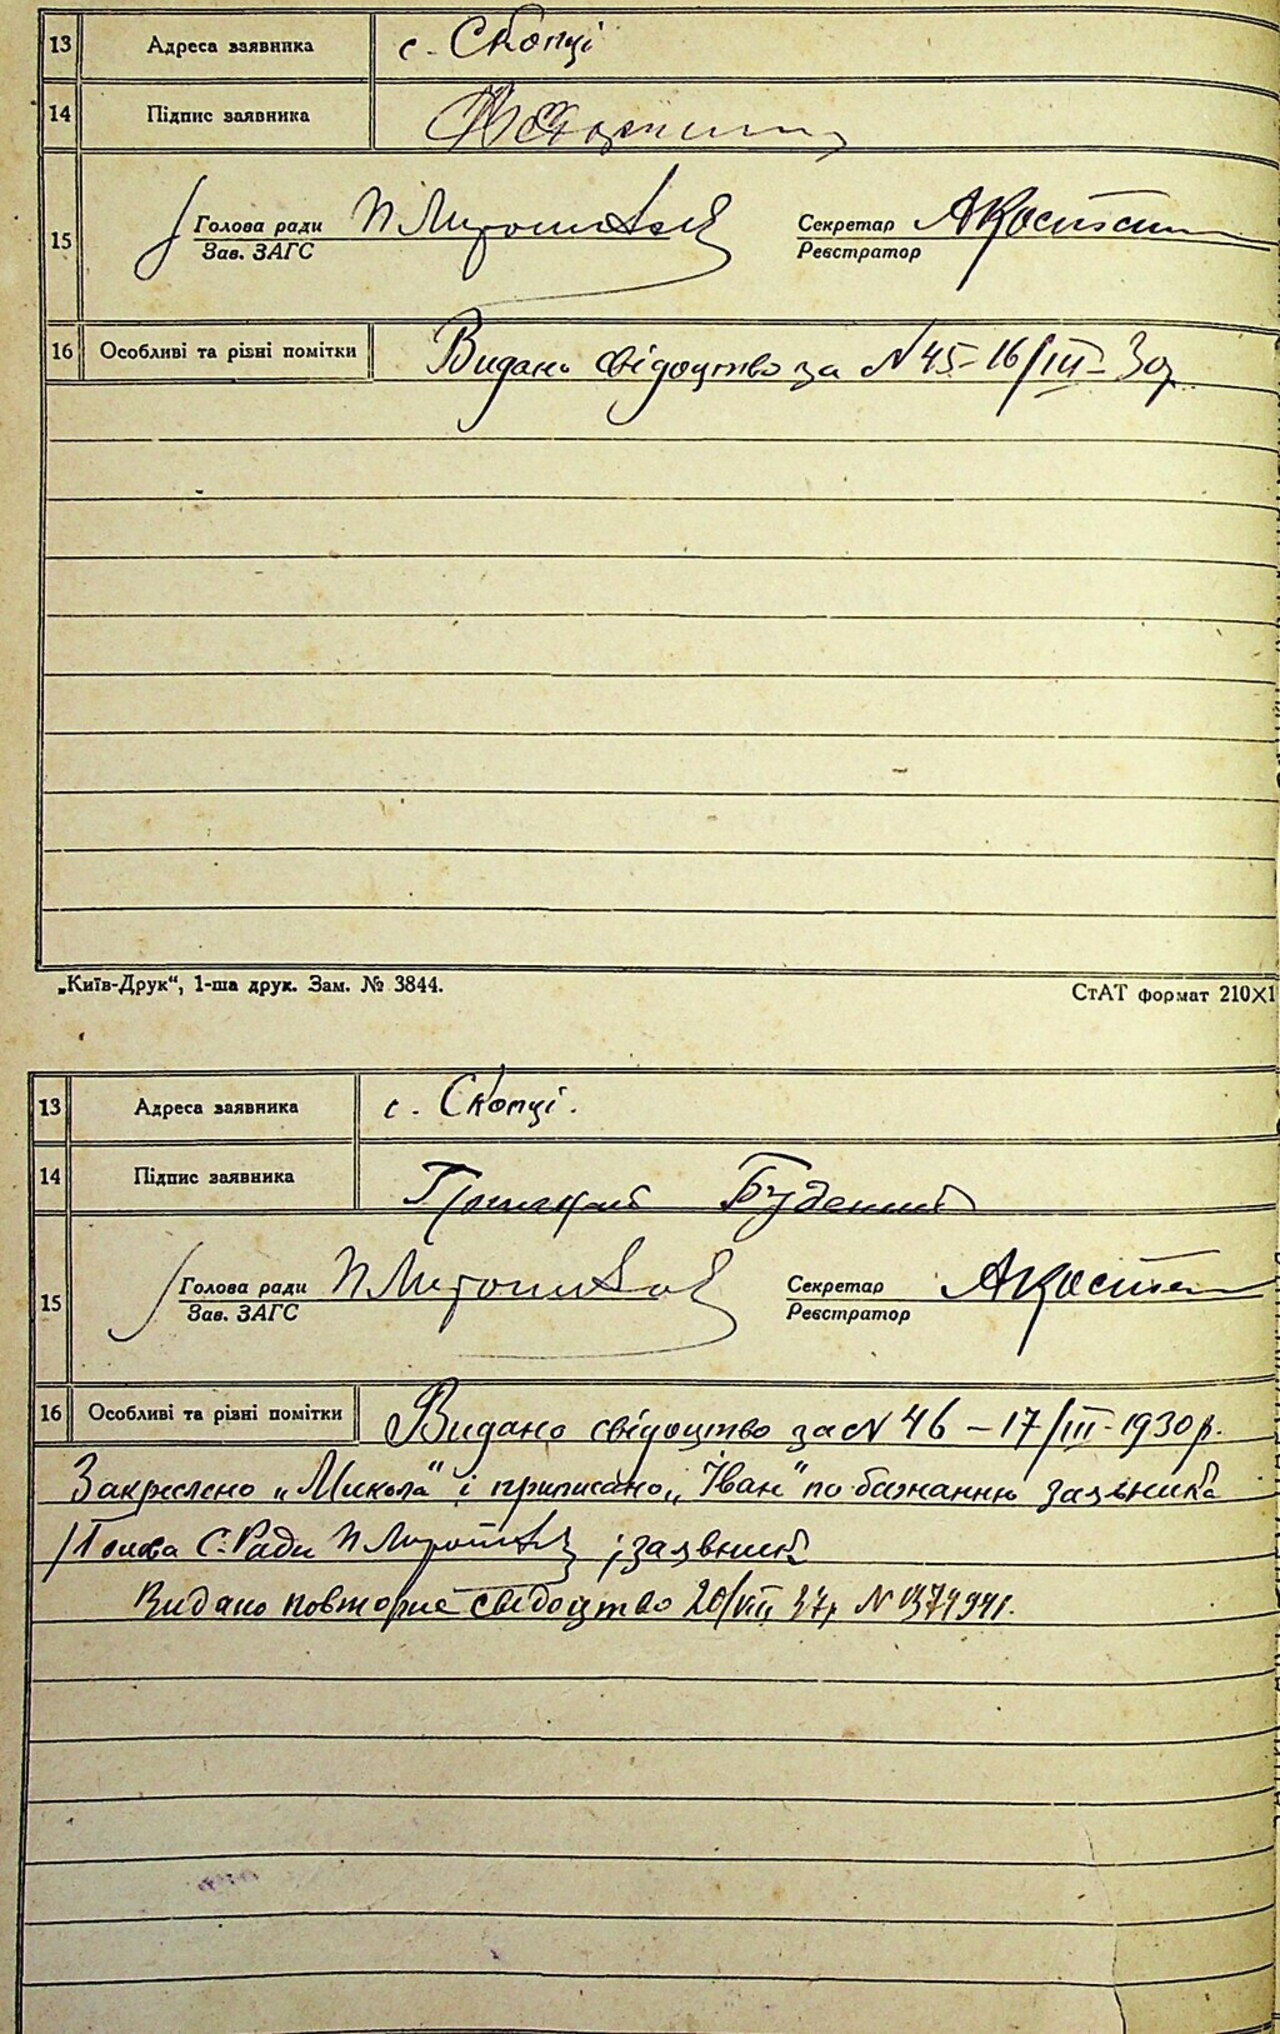 13 Адреса заявника с. Скопці
14 Підпис заявника
15 Голова ради П Мирошн Секретар АКост
Зав. ЗАГС Реєстратор
16 Особливі та різні помітки Видано свідоцтво за N 45 - 16/III - 30р
„Київ-Друк“, 1-ша друк. Зам. № 3844. СтАТ формат 210×1
13 Адреса заявника с. Скопці.
14 Підпис заявника Буденний
15 Голова ради П Мирошн Секретар АКост
Зав. ЗАГС Реєстратор
16 Особливі та різні помітки Видано свідоцтво за N 46 – 17/III - 1930р.
Закреслено „Микола“ і приписано „Іван“ по бажанню заявника
/Голова С. Ради П Мирошн ; заявник
Видано повторне свідоцтво 20/VIII 37р N